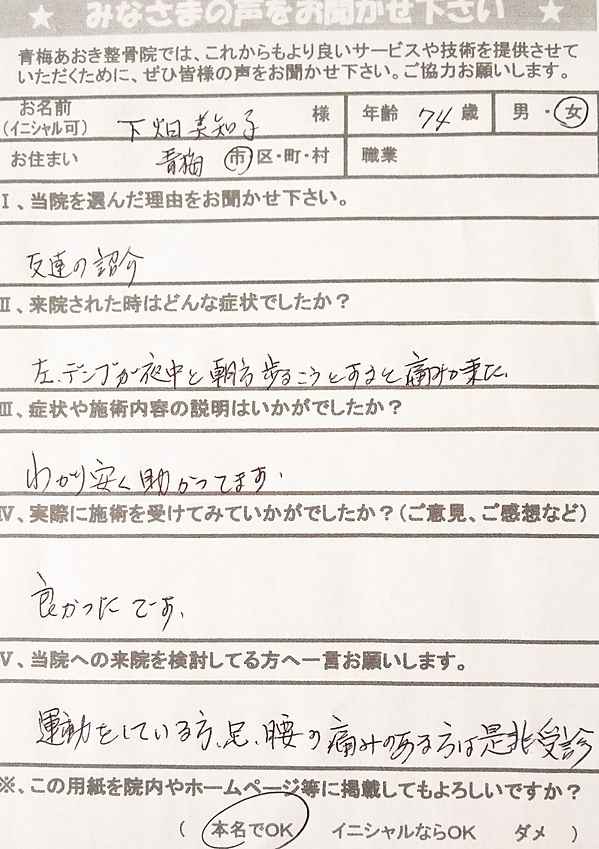 ★ みなさまの声をお聞かせ下さい ★
青梅あおき整骨院では、これからもより良いサービスや技術を提供させて
いただくために、ぜひ皆様の声をお聞かせ下さい。ご協力お願いします。
お名前 (イニシャル可) 下畑美知子 様 年齢 74 歳 男・女
お住まい 青梅 市区・町・村 職業
Ⅰ、当院を選んだ理由をお聞かせ下さい。
友達の紹介
Ⅱ、来院された時はどんな症状でしたか？
左、デンブが夜中と朝方歩るこうとすると痛みが来た、
Ⅲ、症状や施術内容の説明はいかがでしたか？
わかり安く助かってます、
Ⅳ、実際に施術を受けてみていかがでしたか？（ご意見、ご感想など）
良かったです、
Ⅴ、当院への来院を検討してる方へ一言お願いします。
運動をしている方、足、腰の痛みのある方は是非受診
※、この用紙を院内やホームページ等に掲載してもよろしいですか？
（ 本名でOK イニシャルならOK ダメ ）